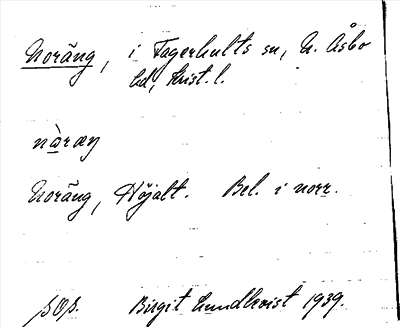 Noräng, i Fagerhults sn, N. Åsbo
hd, Krist. l.
nòræŋ
Noräng, Höjalt. Bel. i norr.
Birgit Lundkvist 1939.